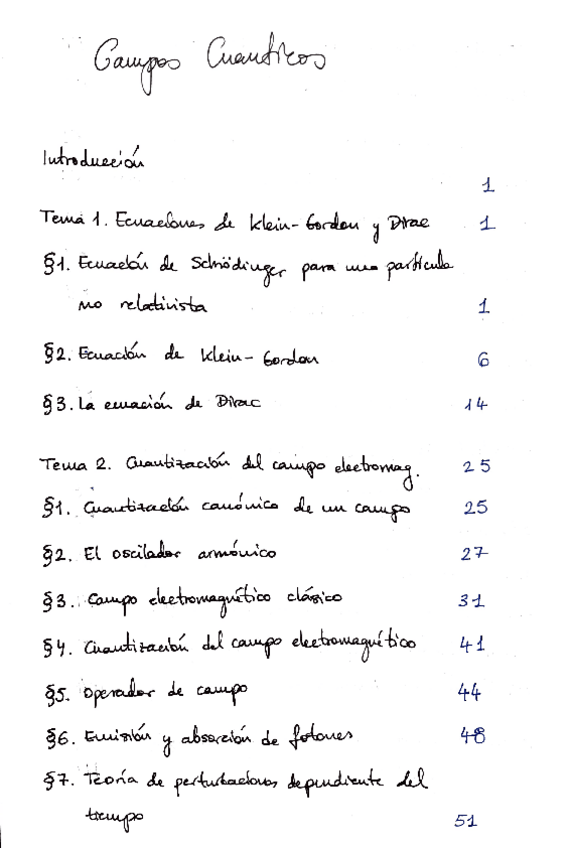 Campos Cuánticos
Introducción
1
Tema 1. Ecuaciones de Klein-Gordon y Dirac 1
§1. Ecuación de Schrödinger para una partícula
no relativista 1
§2. Ecuación de Klein-Gordon 6
§3. La ecuación de Dirac 14
Tema 2. Cuantización del campo electromag. 25
§1. Cuantización canónica de un campo 25
§2. El oscilador armónico 27
§3. Campo electromagnético clásico 31
§4. Cuantización del campo electromagnético 41
§5. Operador de campo 44
§6. Emisión y absorción de fotones 48
§7. Teoría de perturbaciones dependiente del
tiempo 51